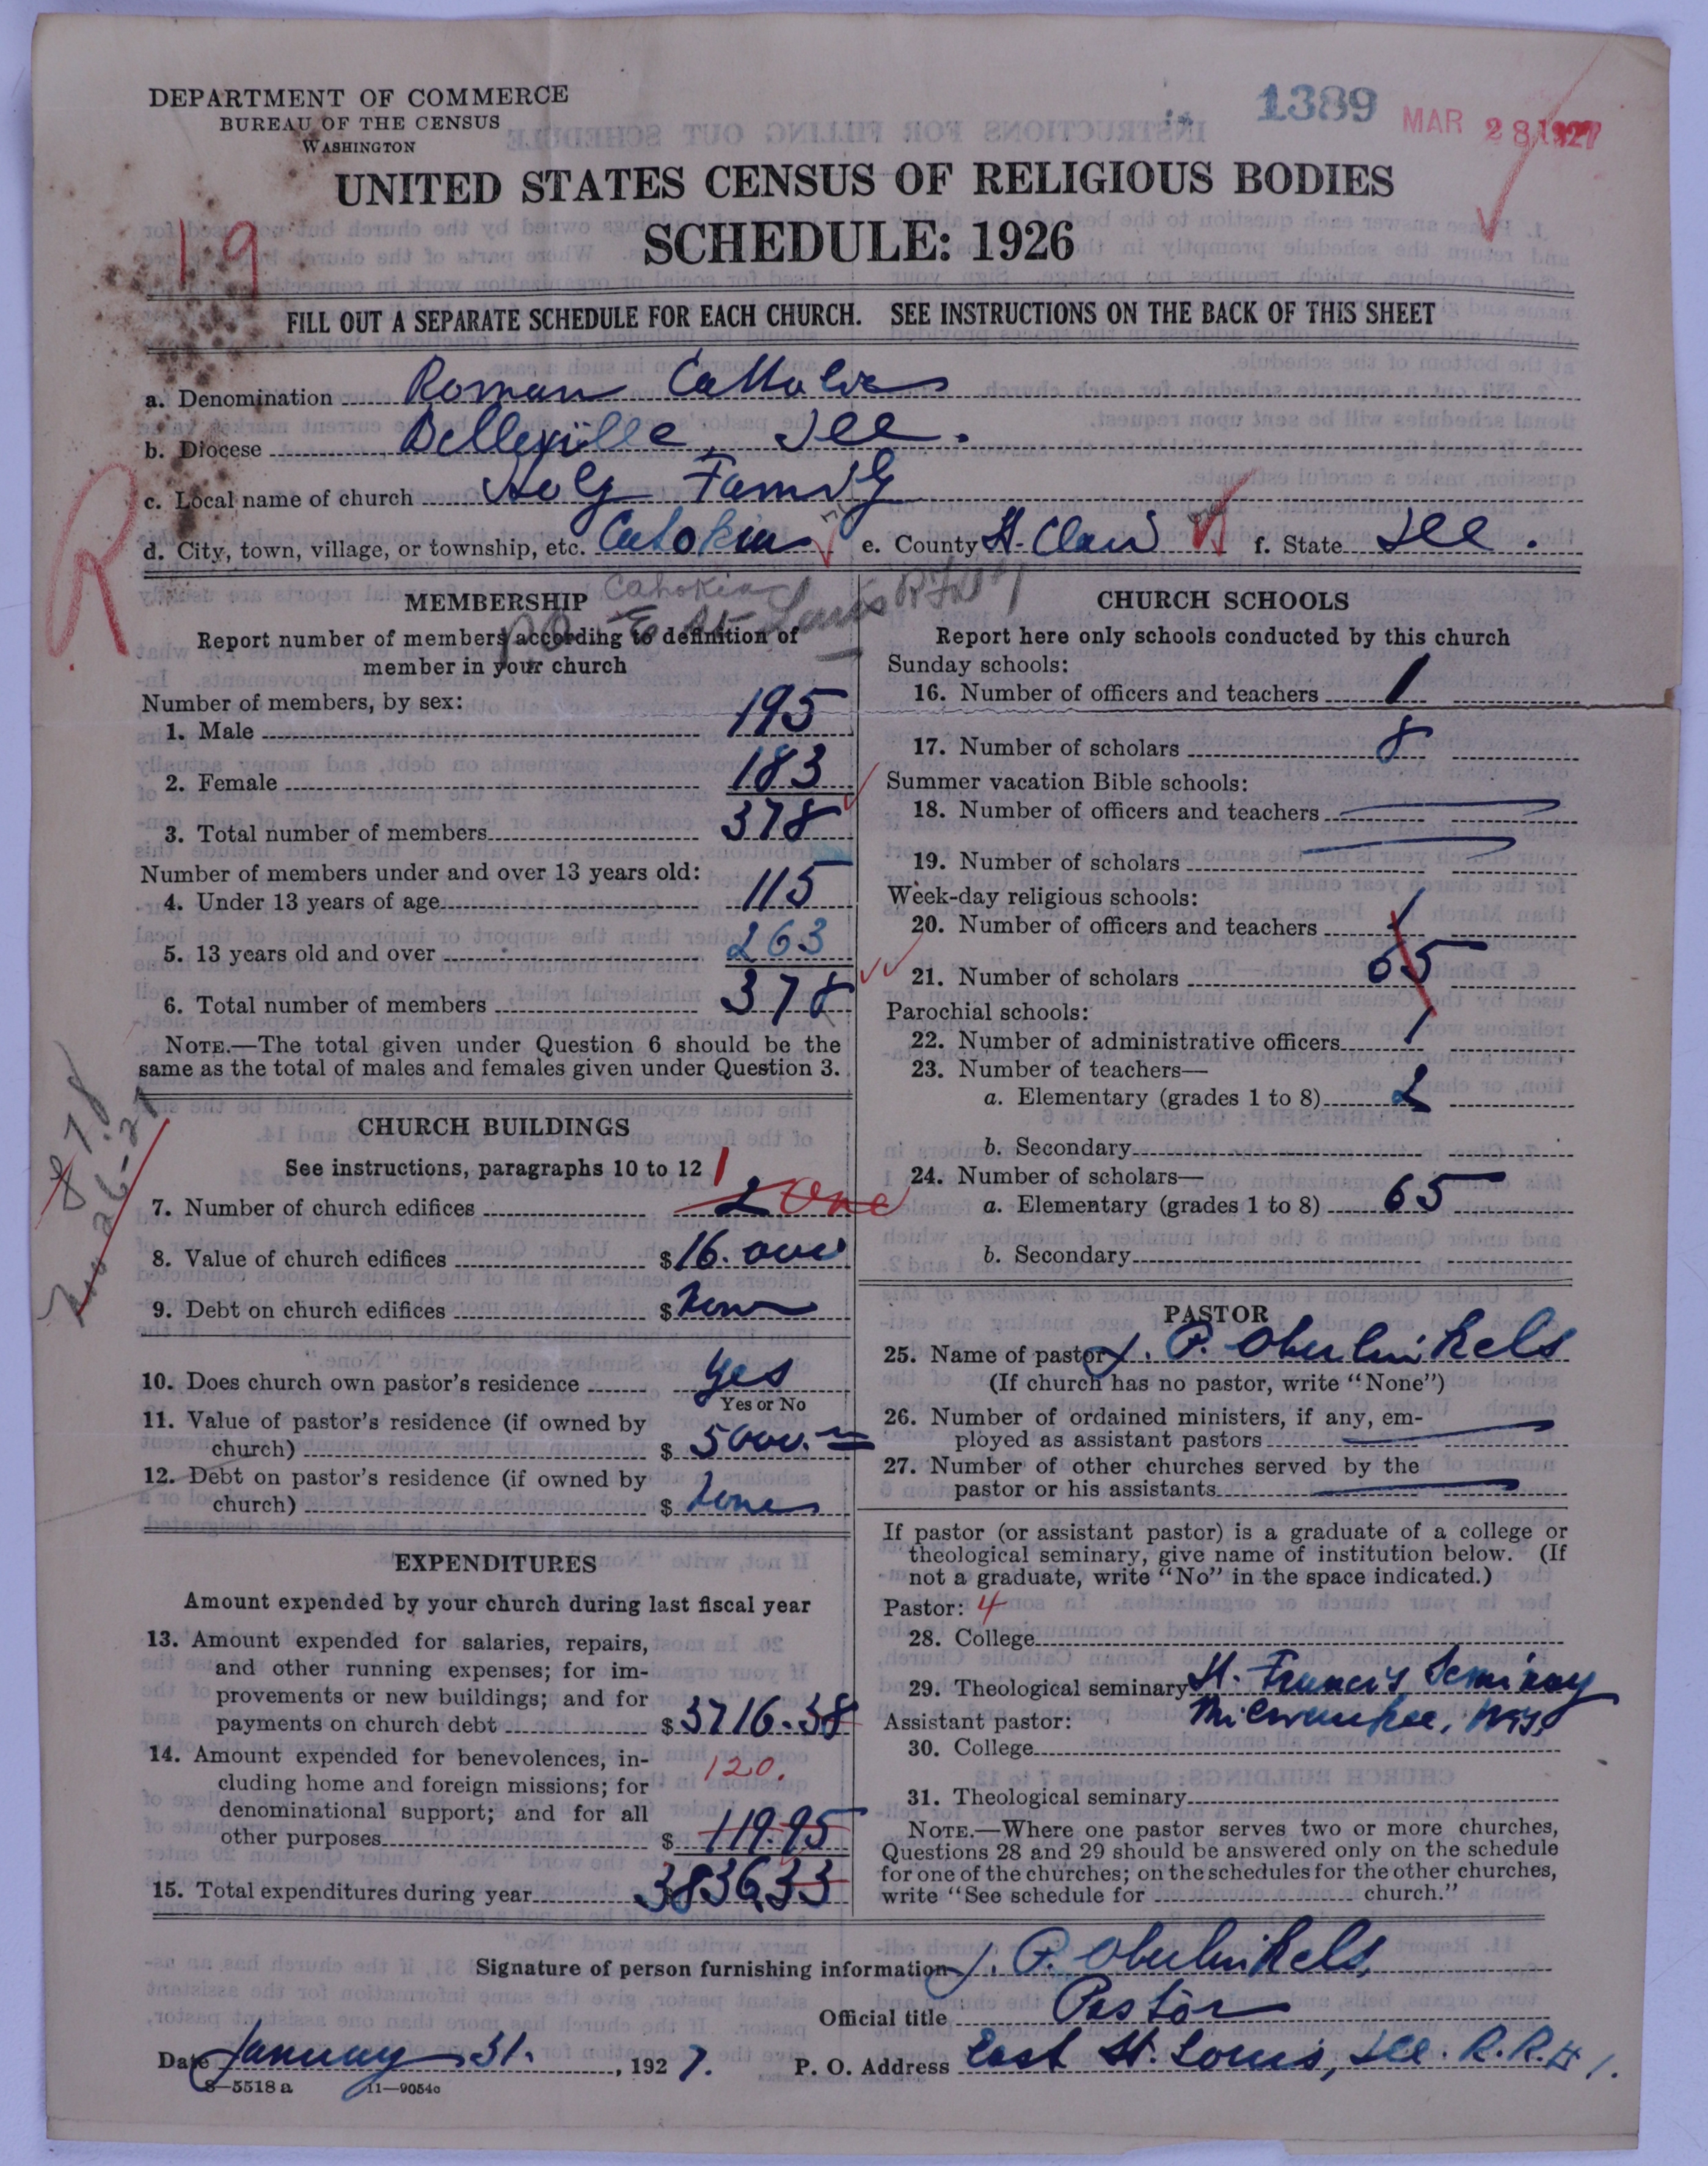 DEPARTMENT OF COMMERCE
BUREAU OF THE CENSUS
WASHINGTON
1389
MAR 28 1927
UNITED STATES CENSUS OF RELIGIOUS BODIES
SCHEDULE: 1926
19
FILL OUT A SEPARATE SCHEDULE FOR EACH CHURCH. SEE INSTRUCTIONS ON THE BACK OF THIS SHEET
a. Denomination Roman Catholic
b. Diocese Belleville, Ill.
c. Local name of church Holy Family
d. City, town, village, or township, etc. Cahokia e. County St. Clair f. State Ill.
R
Cahokia
PO E St Louis RFD #1
MEMBERSHIP
Report number of members according to definition of
member in your church
Number of members, by sex:
1. Male 195
2. Female 183
3. Total number of members 378
Number of members under and over 13 years old:
4. Under 13 years of age 115
5. 13 years old and over 263
6. Total number of members 378
NOTE.—The total given under Question 6 should be the
same as the total of males and females given under Question 3.
CHURCH BUILDINGS
See instructions, paragraphs 10 to 12
1
7. Number of church edifices 2 One
8. Value of church edifices $ 16.000
9. Debt on church edifices $ None
10. Does church own pastor's residence Yes
Yes or No
11. Value of pastor's residence (if owned by
church) $ 5000.
12. Debt on pastor's residence (if owned by
church) $ None
EXPENDITURES
Amount expended by your church during last fiscal year
13. Amount expended for salaries, repairs,
and other running expenses; for im-
provements or new buildings; and for
payments on church debt $ 3716.38
14. Amount expended for benevolences, in-
cluding home and foreign missions; for
denominational support; and for all
120.
other purposes $ 119.95
15. Total expenditures during year 3836.33
CHURCH SCHOOLS
Report here only schools conducted by this church
Sunday schools:
16. Number of officers and teachers 1
17. Number of scholars 8
Summer vacation Bible schools:
18. Number of officers and teachers
19. Number of scholars
Week-day religious schools:
20. Number of officers and teachers 1
21. Number of scholars 65
Parochial schools:
22. Number of administrative officers 1
23. Number of teachers—
a. Elementary (grades 1 to 8) 2
b. Secondary
24. Number of scholars—
a. Elementary (grades 1 to 8) 65
b. Secondary
PASTOR
25. Name of pastor J. P. Oberlinkels
(If church has no pastor, write "None")
26. Number of ordained ministers, if any, em-
ployed as assistant pastors
27. Number of other churches served by the
pastor or his assistants
If pastor (or assistant pastor) is a graduate of a college or
theological seminary, give name of institution below. (If
not a graduate, write "No" in the space indicated.)
Pastor: 4
28. College
29. Theological seminary St. Francis Seminary
Milwaukee, Wis.
Assistant pastor:
30. College
31. Theological seminary
NOTE.—Where one pastor serves two or more churches,
Questions 28 and 29 should be answered only on the schedule
for one of the churches; on the schedules for the other churches,
write "See schedule for church."
Signature of person furnishing information J. P. Oberlinkels,
Official title Pastor
Date January 31. , 1927.
P. O. Address East St. Louis, Ill. R.R.# 1.
8—5518 a 11—9054c